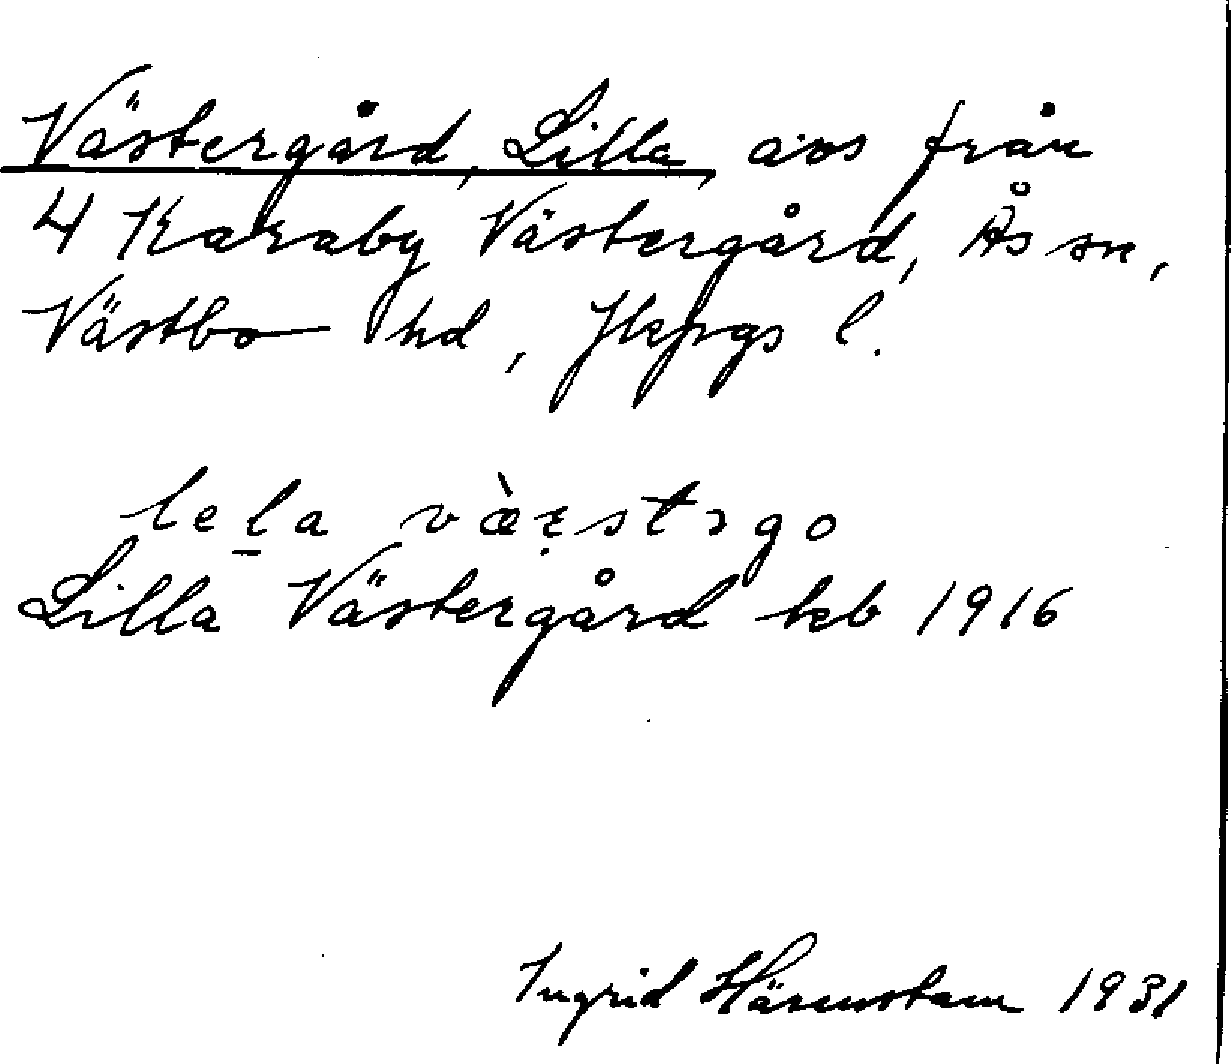 Västergård, Lilla, avs från
4 Karaby Västergård, Ås sn,
Västbo hd, Jkpgs l.
lela væ̀rstəgo
Lilla Västergård kb 1916
Ingrid Härenstam 1931